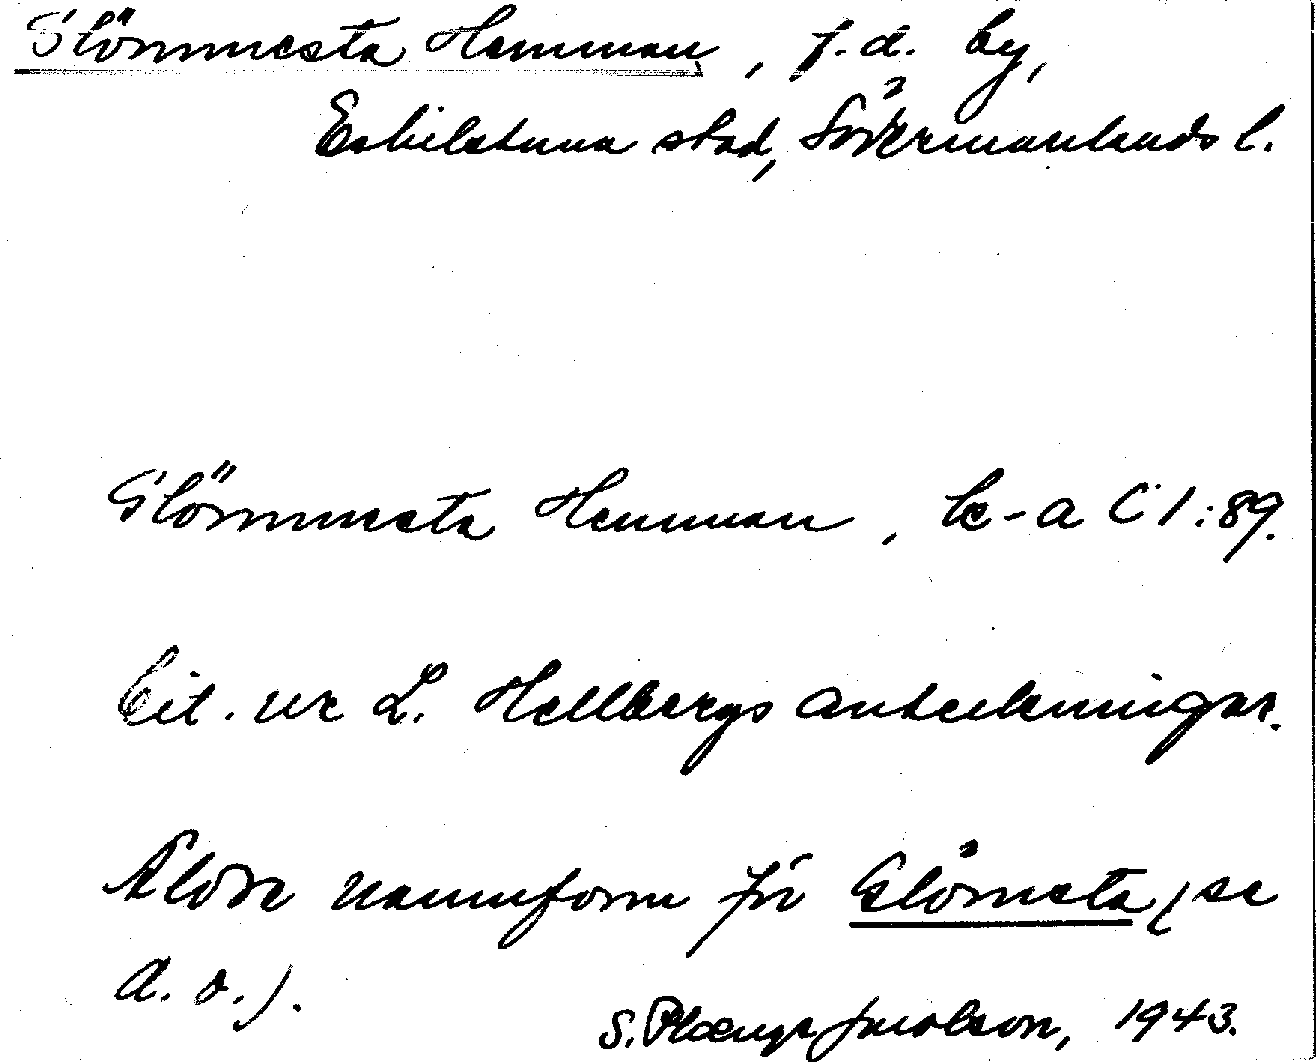 Glömmesta Hemman, f.d. by,
Eskilstuna stad, Södermanlands l.
Glömmesta Hemman, le-a C 1:89.
Cit. ur L. Hellbergs anteckningar.
Äldre namnform för Glömsta, (se
d. o.).
S. Jacobson, 1943.